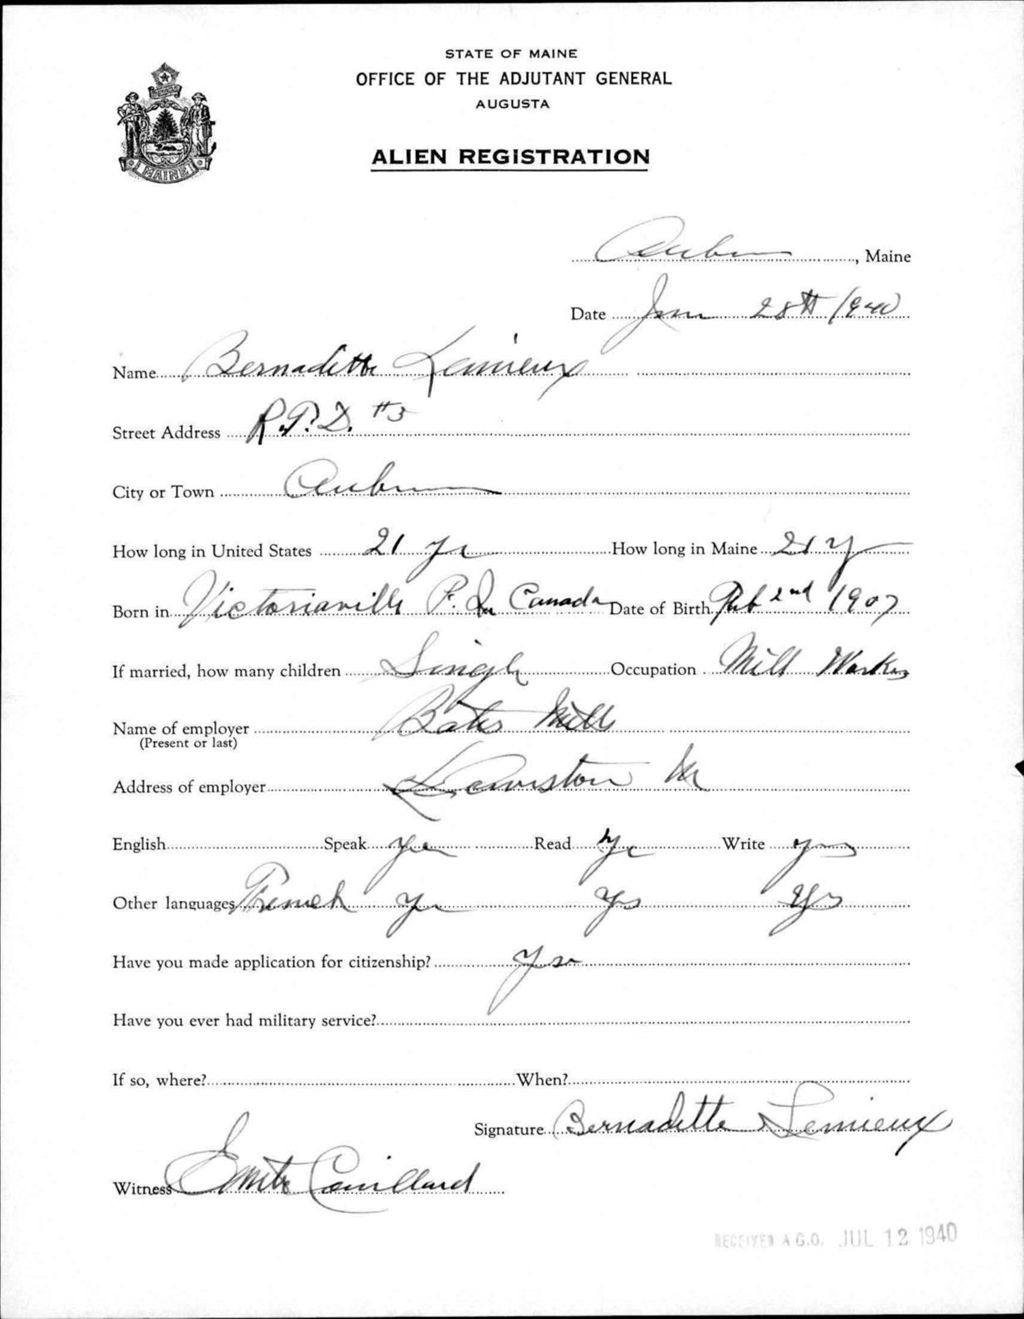 STATE OF MAINE
OFFICE OF THE ADJUTANT GENERAL
AUGUSTA
ALIEN REGISTRATION
MAINE
Auburn, Maine
Date June 28th 1940
Name Bernadette Lemieux
Street Address R.F.D. #3
City or Town Auburn
How long in United States 21 yr How long in Maine 21 y
Born in Victoriaville P. Qu Canada Date of Birth Feb 2nd 1907
If married, how many children Single Occupation Mill Worker
Name of employer Bates Mill
(Present or last)
Address of employer Lewiston Me
English Speak Yes Read Yes Write yes
Other languages French yes yes yes
Have you made application for citizenship? Yes
Have you ever had military service?
If so, where? When?
Signature Bernadette Lemieux
Witness
RECEIVED A.G.O. JUL 12 1940